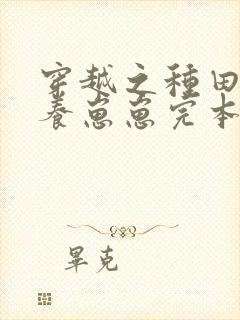 穿越之種田
養崽崽完本
畢克